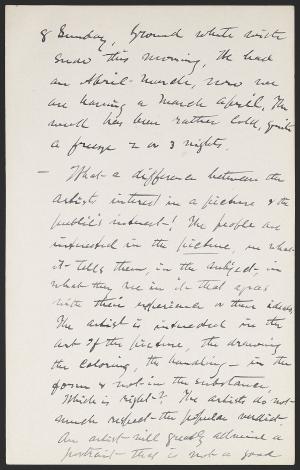 8 Sunday, Ground white with
snow this morning, We had
an April-March, now we
are having a March April, The
week has been rather cold, quite
a freeze 2 or 3 nights.
— What a difference between the
artists interest in a picture & the
public's interest! The people are
interested in the picture, in what
it tells them, in the subject, in
what they see in it that agrees
with their experience or their ideas,
The artist is interested in the
art of the picture, the drawing
the coloring, the handling — in the
form & not in the substance,
Which is right? The artists do not
much respect the popular verdict.
An artist will greatly admire a
portrait that is not a good